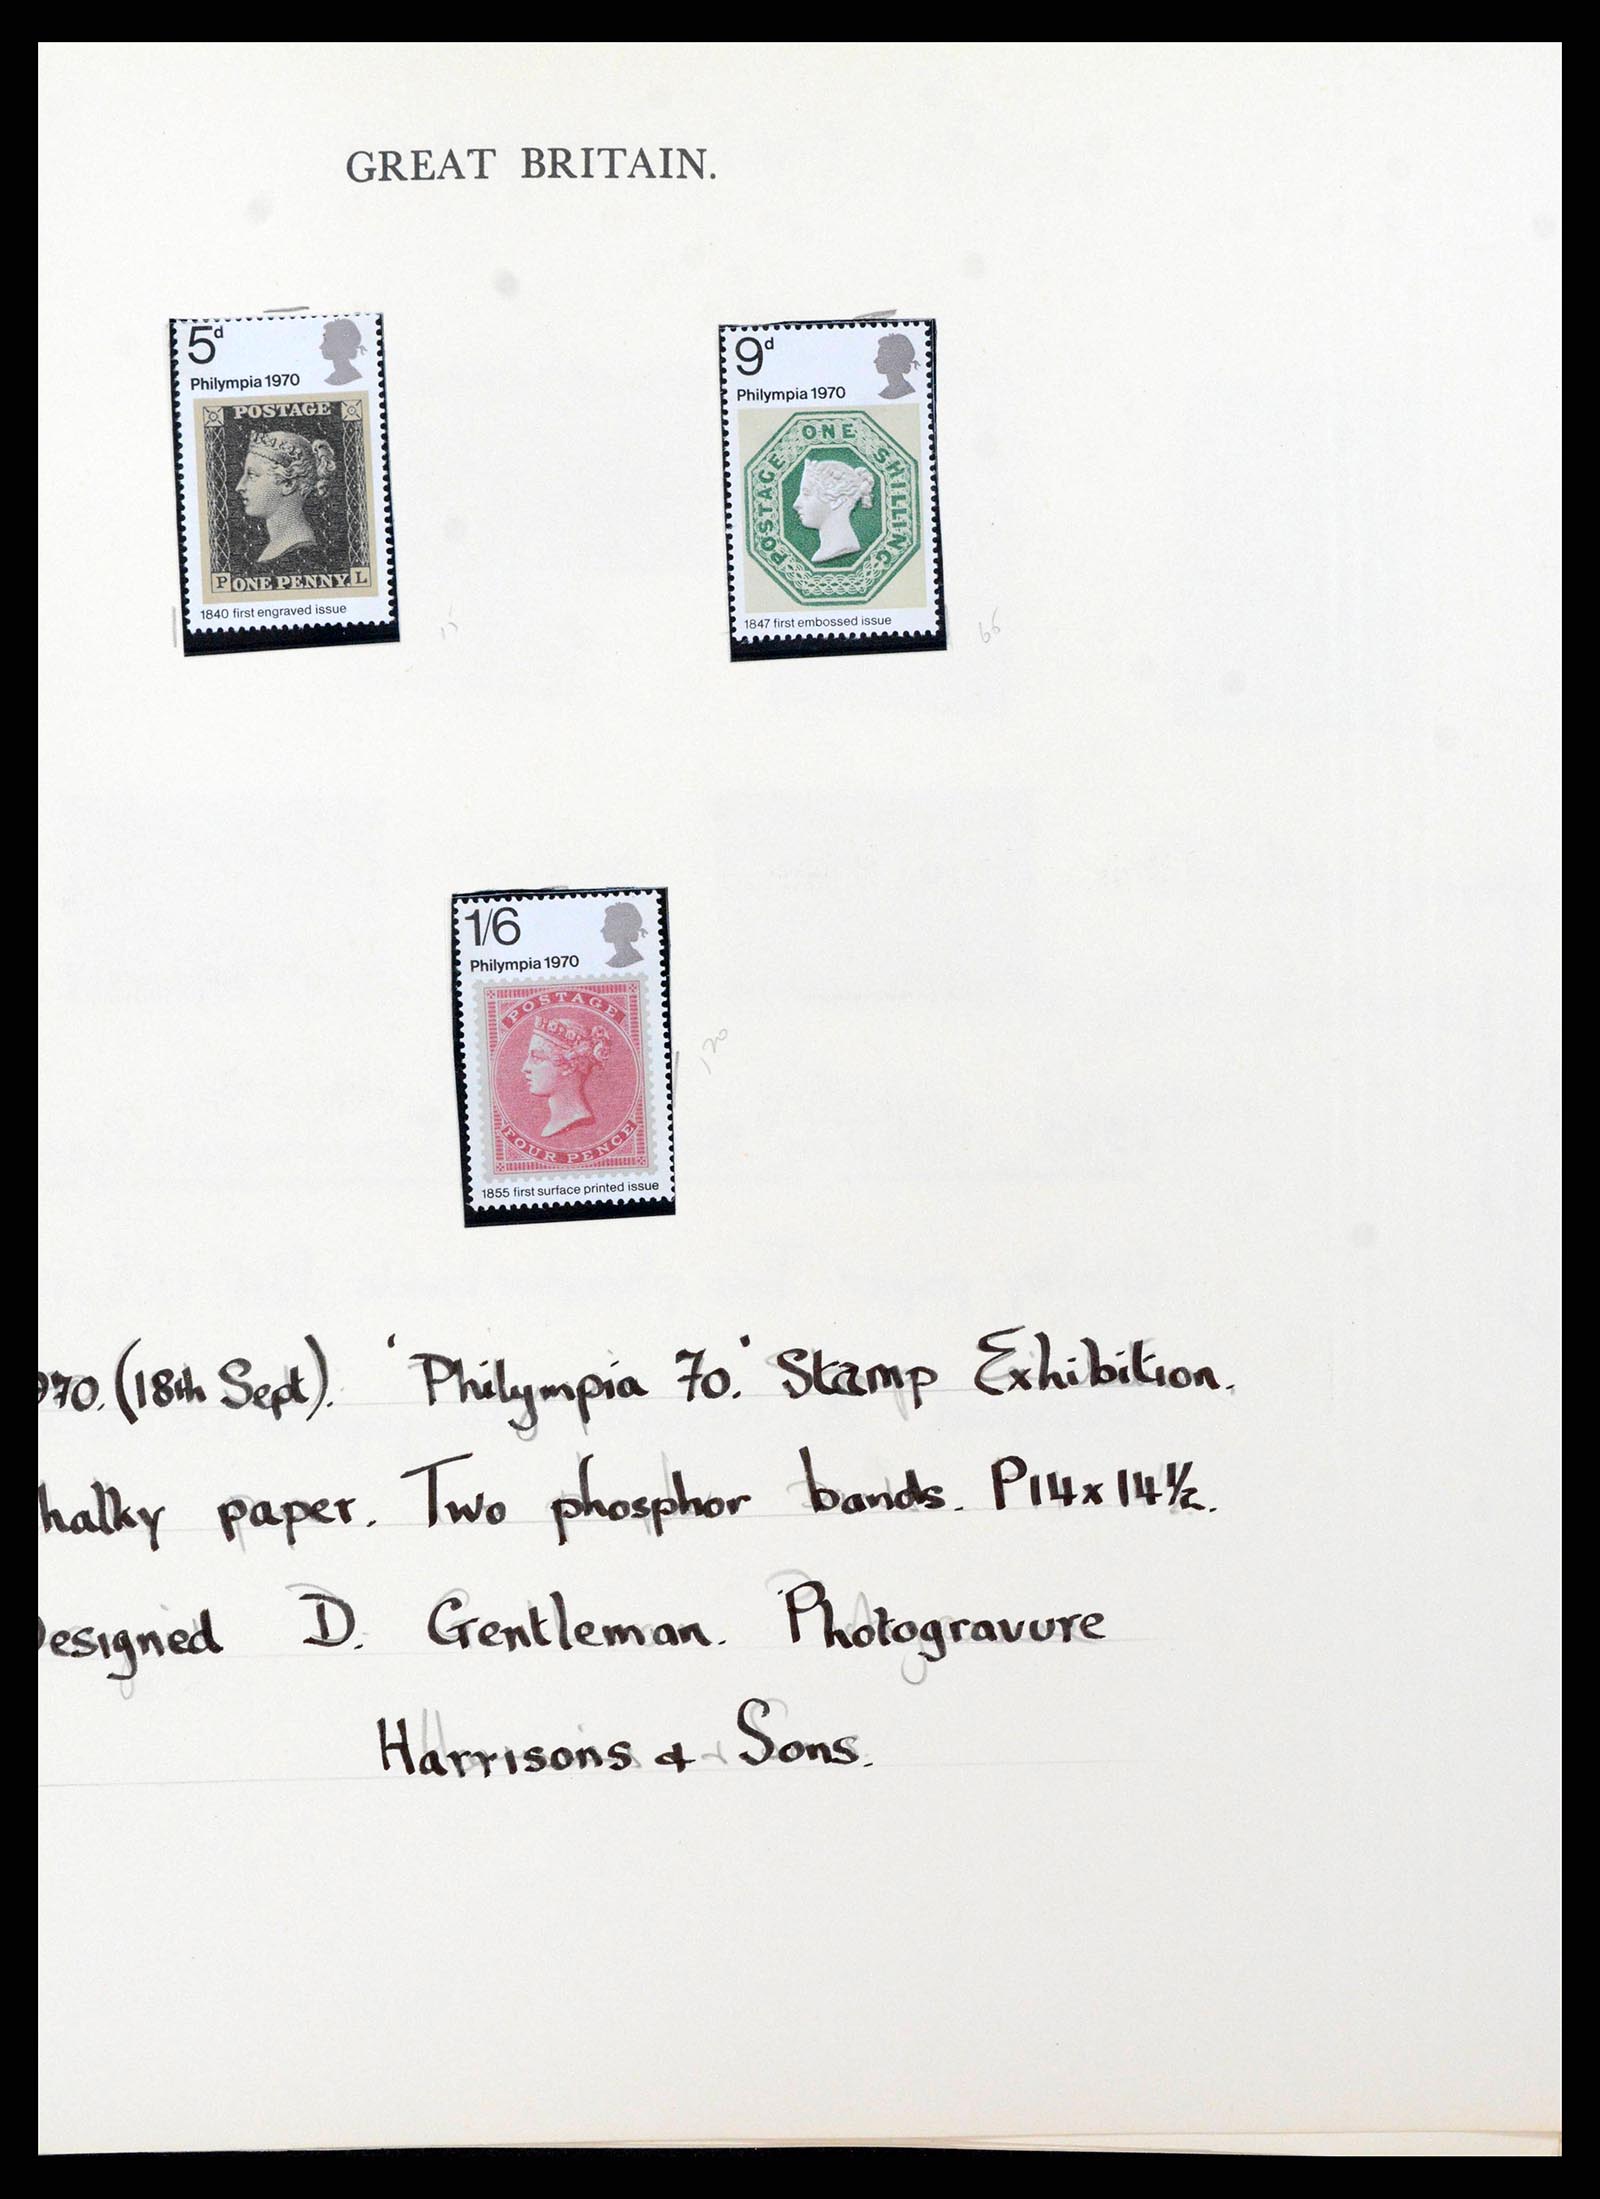 GREAT BRITAIN.
5d
Philympia 1970
POSTAGE
P ONE PENNY. L
1840 first engraved issue
9d
Philympia 1970
POSTAGE ONE SHILLING
1847 first embossed issue
66
1/6
Philympia 1970
POSTAGE
FOUR PENCE
1855 first surface printed issue
120
970. (18th Sept). 'Philympia 70.' Stamp Exhibition.
halky paper. Two phosphor bands. P14x14½.
Designed D. Gentleman. Photogravure
Harrisons & Sons.